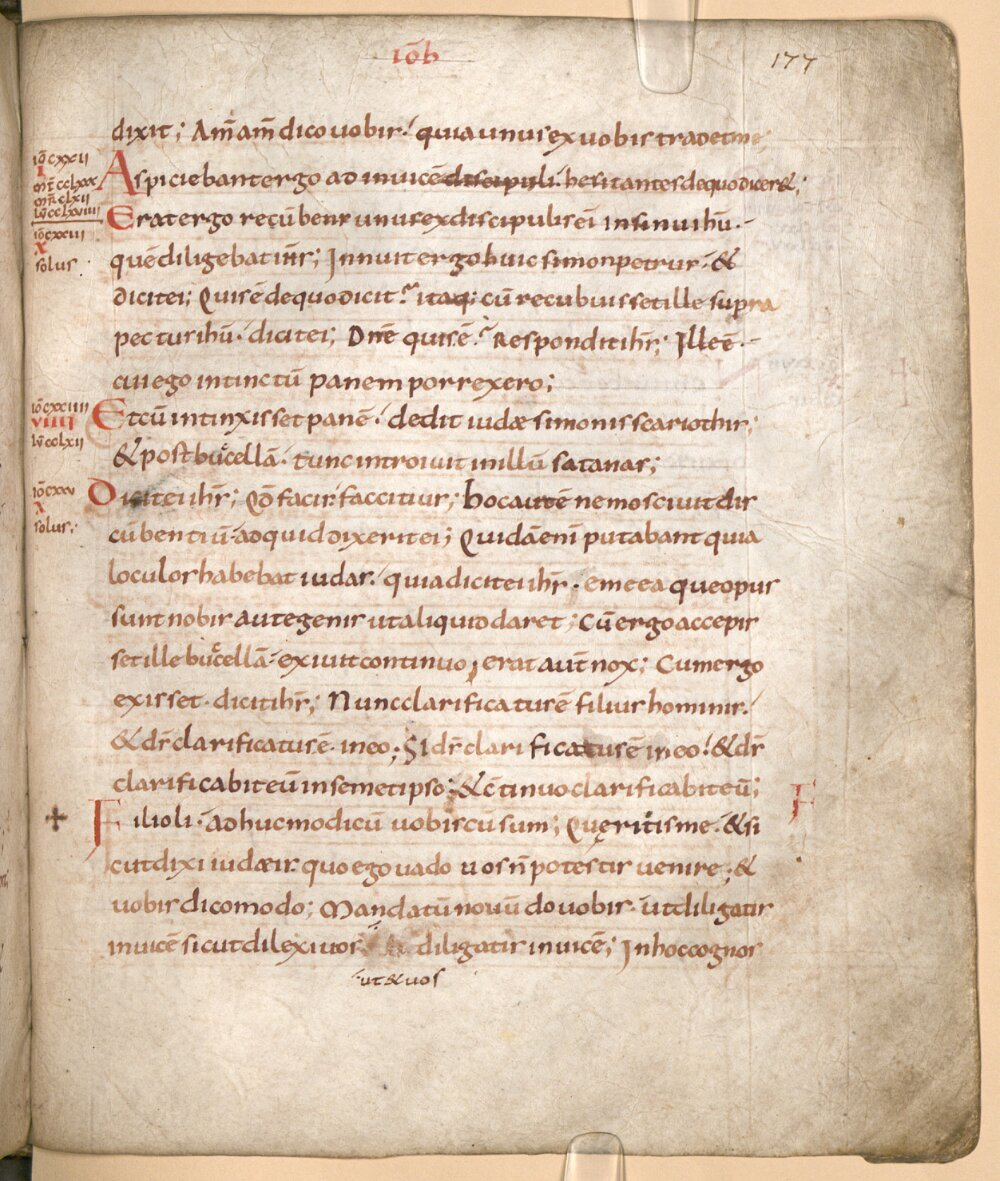 iōh
177
dixit; Am̄ am̄ dico uobis. quia unus ex uobis tradet me
iō cxxii
i
mt̄ cclxxx
mr̄ clxii
lū cclxviiii
Aspiciebant ergo ad inuicē discipuli. hesitantes de quo dicer&;
iō cxxiii
x
solus
Erat ergo recūbens unus ex discipulis ei in sinu ihū.
quē diligebat ihs; Innuit ergo huic simon petrus. &
dicit ei; Quis ē de quo dicit? itaq; cū recubuisset ille supra
pectus ihū. dicit ei; Dn̄e quis ē? Respondit ihs; Ille ē.
cui ego intinctū panem porrexero;
iō cxxiiii
viiii
lū cclxii
Et cū intinxisset panē. dedit iudæ simonis scariothis;
& post bucellā. tunc introiuit in illū satanas;
iō cxxv
x
solus.
Dicit ei ihs; Qd̄ facis. fac citius; hoc autē nemo sciuit dis
cūbentiū. ad quid dixerit ei; Quidā enī putabant quia
loculos habebat iudas. quia dicit ei ihs. eme ea que opus
sunt nobis aut egenis ut aliquid daret; Cū ergo accepis
set ille bucellā. exiuit continuo; erat aūt nox; Cum ergo
exisset. dicit ihs; Nunc clarificatus ē filius hominis.
& ds̄ clarificatus ē. in eo; Si ds̄ clarificatus ē in eo. & ds̄
clarificabit eū in semetipso; & c̄tinuo clarificabit eū;
Filioli. adhuc modicū uobiscū sum; Queritis me. & si
F
cut dixi iudæis. quo ego uado uos n̄ potestis uenire; &
uobis dico modo; Mandatū nouū do uobis. ut diligatis
inuicē sicut dilexi uos diligatis inuicē; In hoc cognos
ut & uos